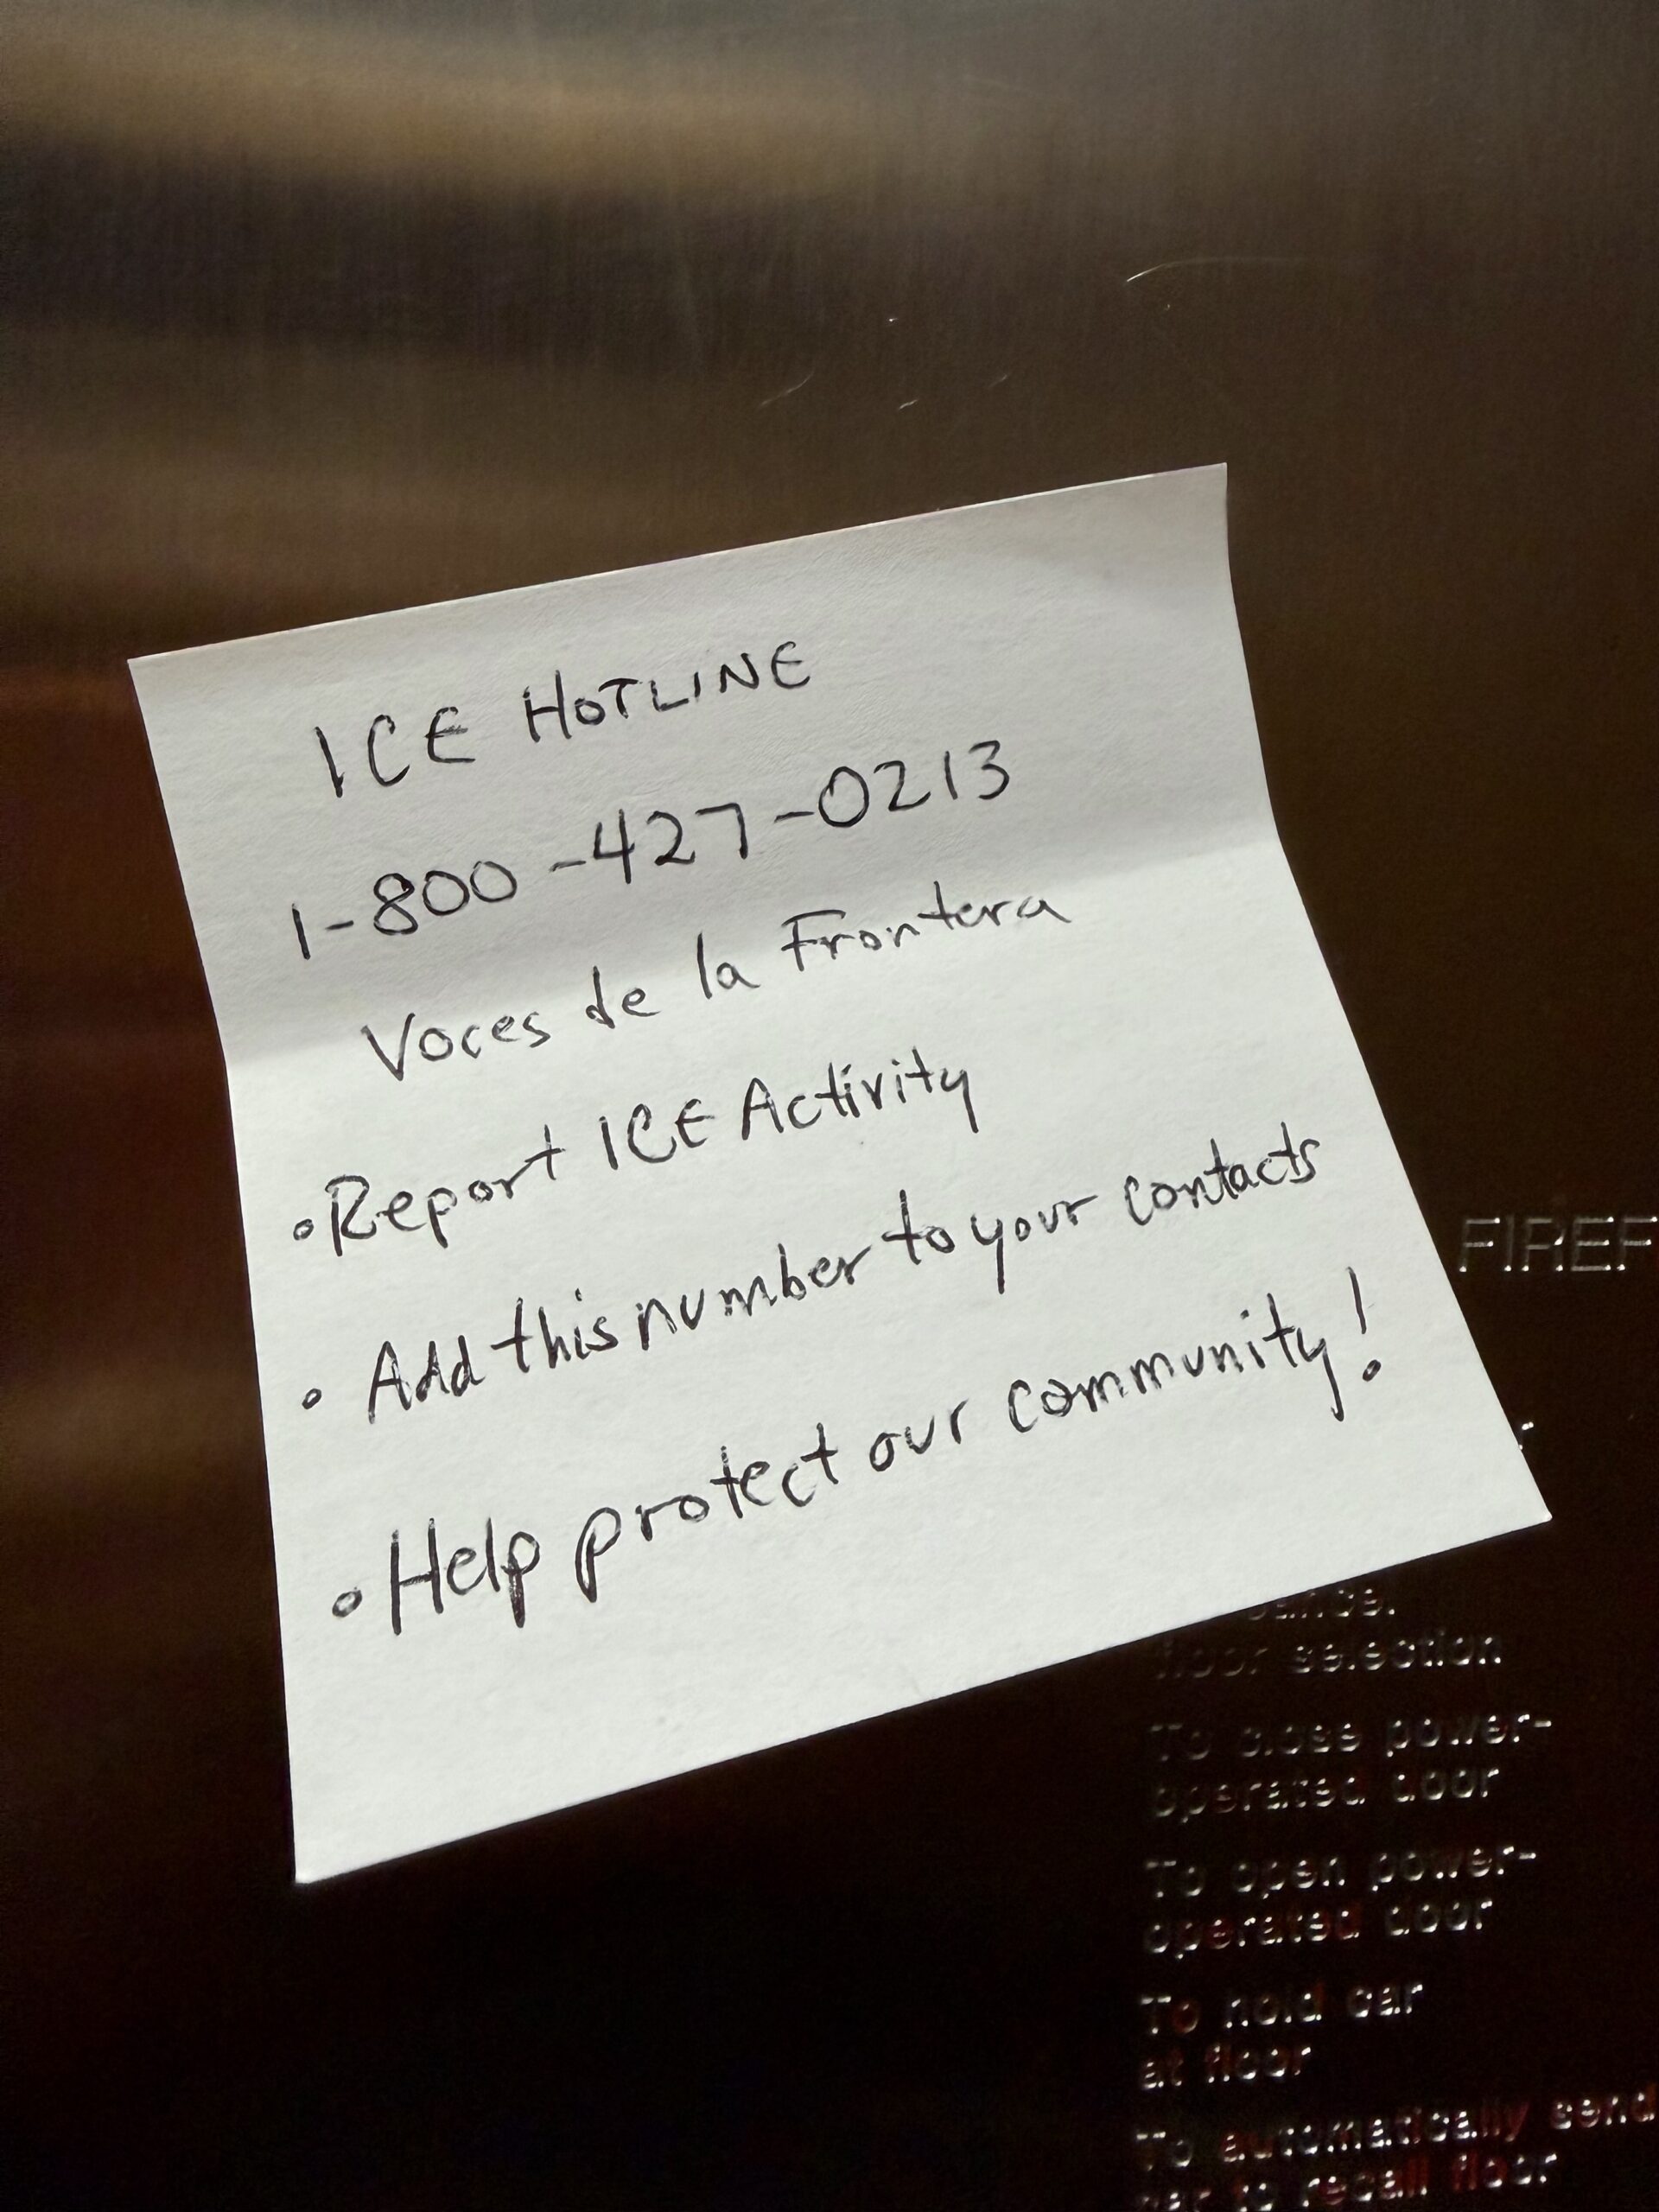 ICE HOTLINE
1-800-427-0213
Voces de la Frontera
• Report ICE Activity
• Add this number to your contacts
• Help protect our community!
FIREF
floor selection
To close power-
operated door
To open power-
operated door
To hold car
at floor
To automatically send
car to recall floor